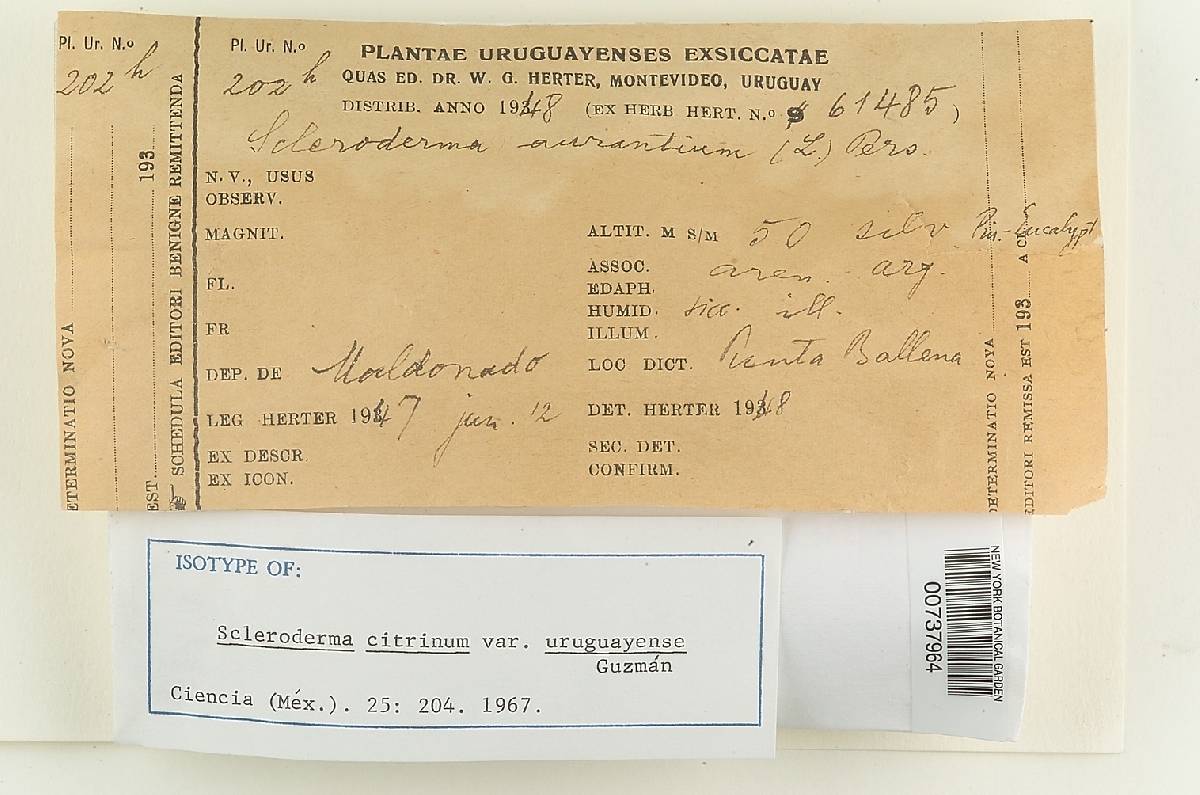 Pl. Ur. N.o
202 h
ETERMINATIO NOVA
EST. 193
SCHEDULA EDITORI BENIGNE REMITTENDA
Pl. Ur. N.o
202 h
PLANTAE URUGUAYENSES EXSICCATAE
QUAS ED. DR. W. G. HERTER, MONTEVIDEO, URUGUAY
DISTRIB. ANNO 1948 (EX HERB HERT. N.o 61485)
Scleroderma aurantium (L.) Pers.
N. V., USUS
OBSERV.
MAGNIT.
FL.
FR
DEP. DE Maldonado
LEG HERTER 1947 jan. 12
EX DESCR
EX ICON.
ALTIT. M S/M 50 silv Pin. Eucalypt
ASSOC.
EDAPH. aren. arg.
HUMID. sicc. ill.
ILLUM.
LOC DICT. Punta Ballena
DET. HERTER 1948
SEC. DET.
CONFIRM.
DETERMINATIO NOVA
EDITORI REMISSA EST 193
ISOTYPE OF:
Scleroderma citrinum var. uruguayense
Guzmán
Ciencia (Méx.). 25: 204. 1967.
NEW YORK BOTANICAL GARDEN
00737964